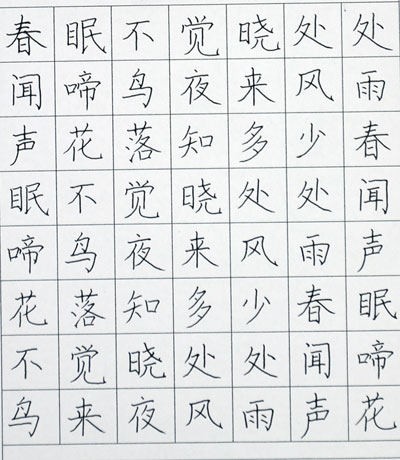 春眠不觉晓处处
闻啼鸟夜来风雨
声花落知多少春
眠不觉晓处处闻
啼鸟夜来风雨声
花落知多少春眠
不觉晓处处闻啼
鸟来夜风雨声花